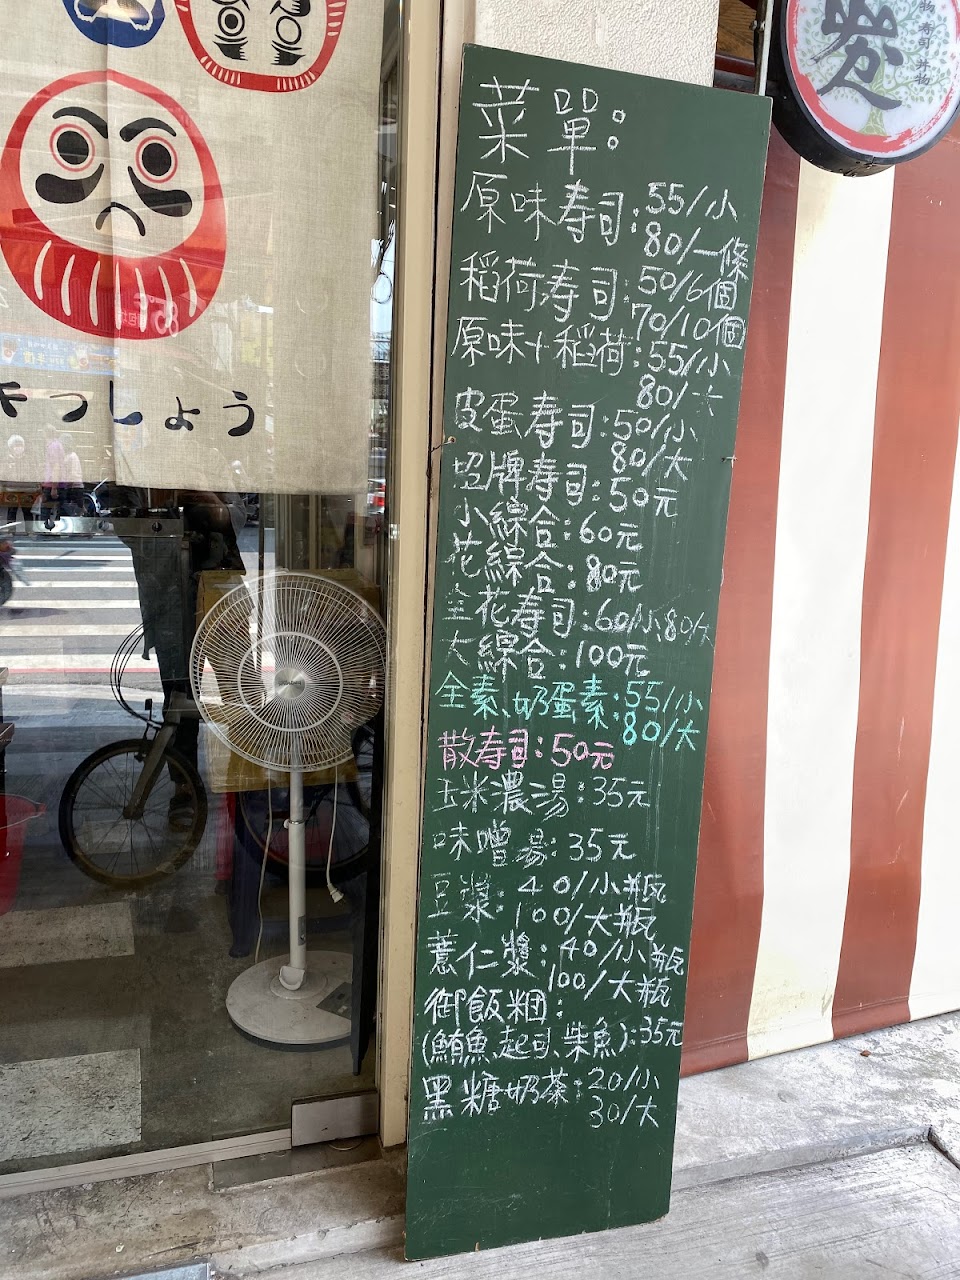 菜單:
原味寿司:55/小
80/一條
稻荷寿司:50/6個
70/10個
原味+稻荷:55/小
80/大
皮蛋寿司:50/小
80/大
招牌寿司:50元
小綜合:60元
花綜合:80元
全花寿司:60/小80/大
大綜合:100元
全素、奶蛋素:55/小
80/大
散寿司:50元
玉米濃湯:35元
味噌湯:35元
豆漿:40/小瓶
100/大瓶
薏仁漿:40/小瓶
100/大瓶
御飯糰:
(鮪魚、起司、柴魚):35元
黑糖奶茶:20/小
30/大
っしょう
85°C